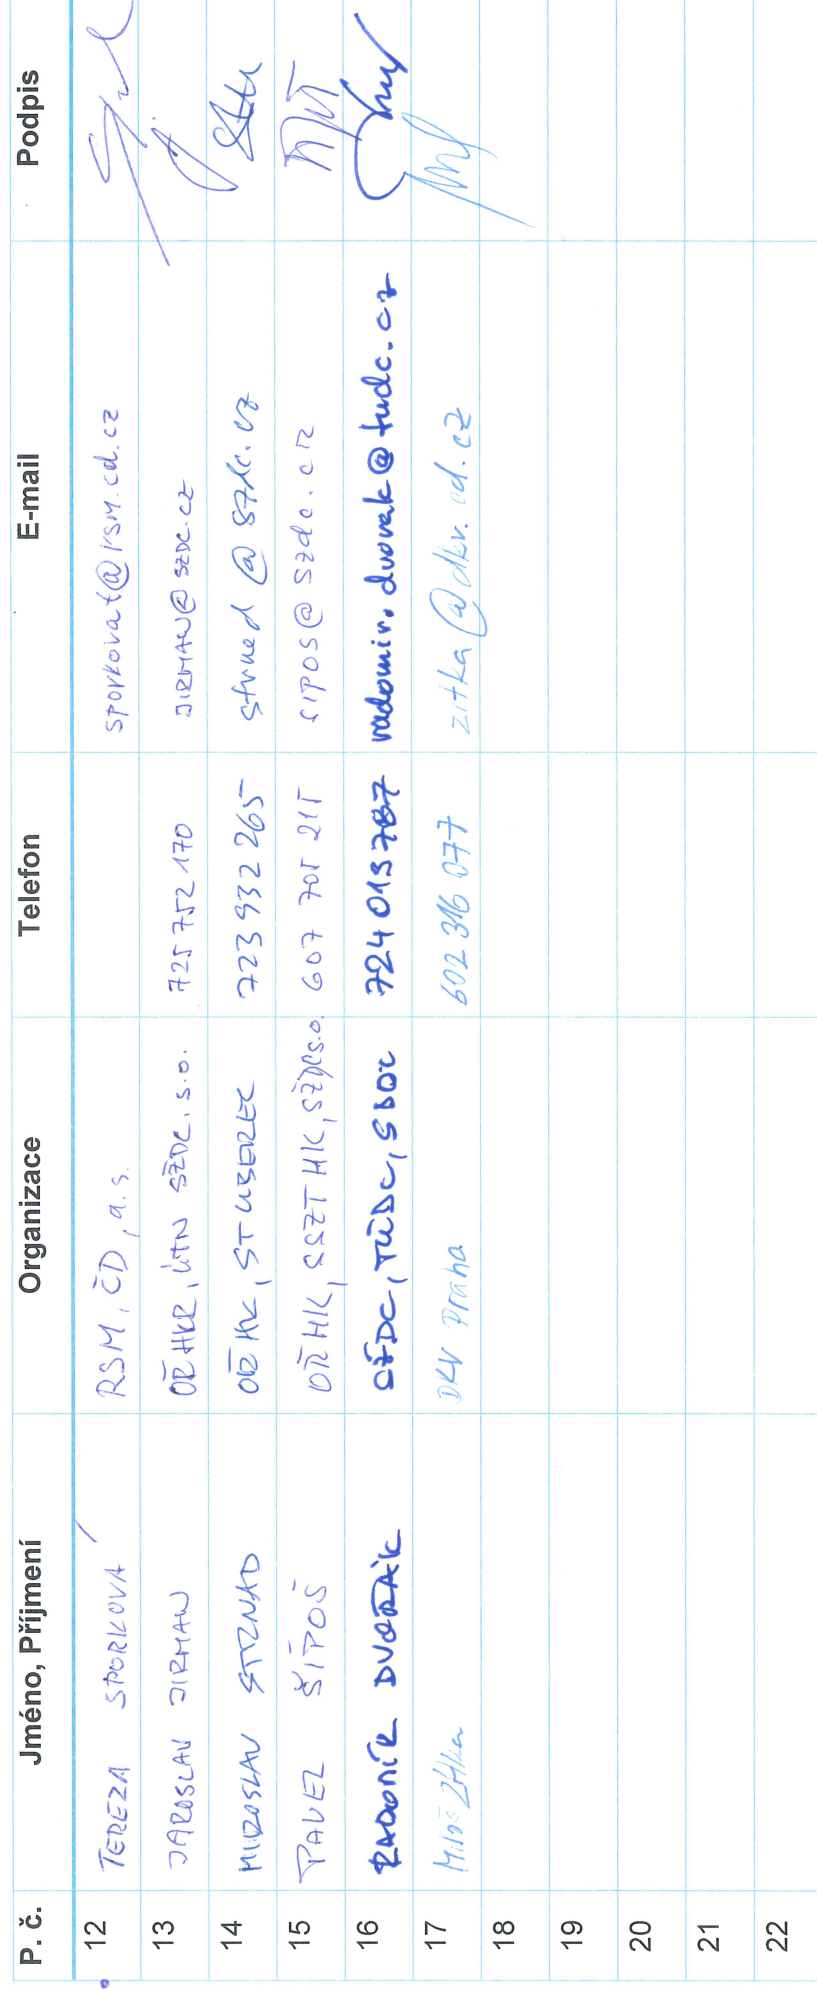 P. č. Jméno, Příjmení Organizace Telefon E-mail Podpis
12 TEREZA SPORKOVÁ RSM, ČD, a.s. sporkovat@rsm.cd.cz
13 JAROSLAV JIRMAN OŘ HKR, ÚTN SŽDC, s.o. 725 752 170 JIRMAN@SZDC.CZ
14 MIROSLAV STRNAD OŘ HK, ST LIBEREC 723 932 265 strnad@szdc.cz
15 PAVEL ŠIPOŠ OŘ HK, SSZT HK, SŽDC s.o. 607 705 215 SIPOS@szdc.cz
16 RADOMÍR DVOŘÁK SŽDC, TÚDC, 724 013 787 radomir.dvorak@tudc.cz
17 Miloš Zítka DKV Praha 602 316 077 zitka@dkv.cd.cz
18
19
20
21
22